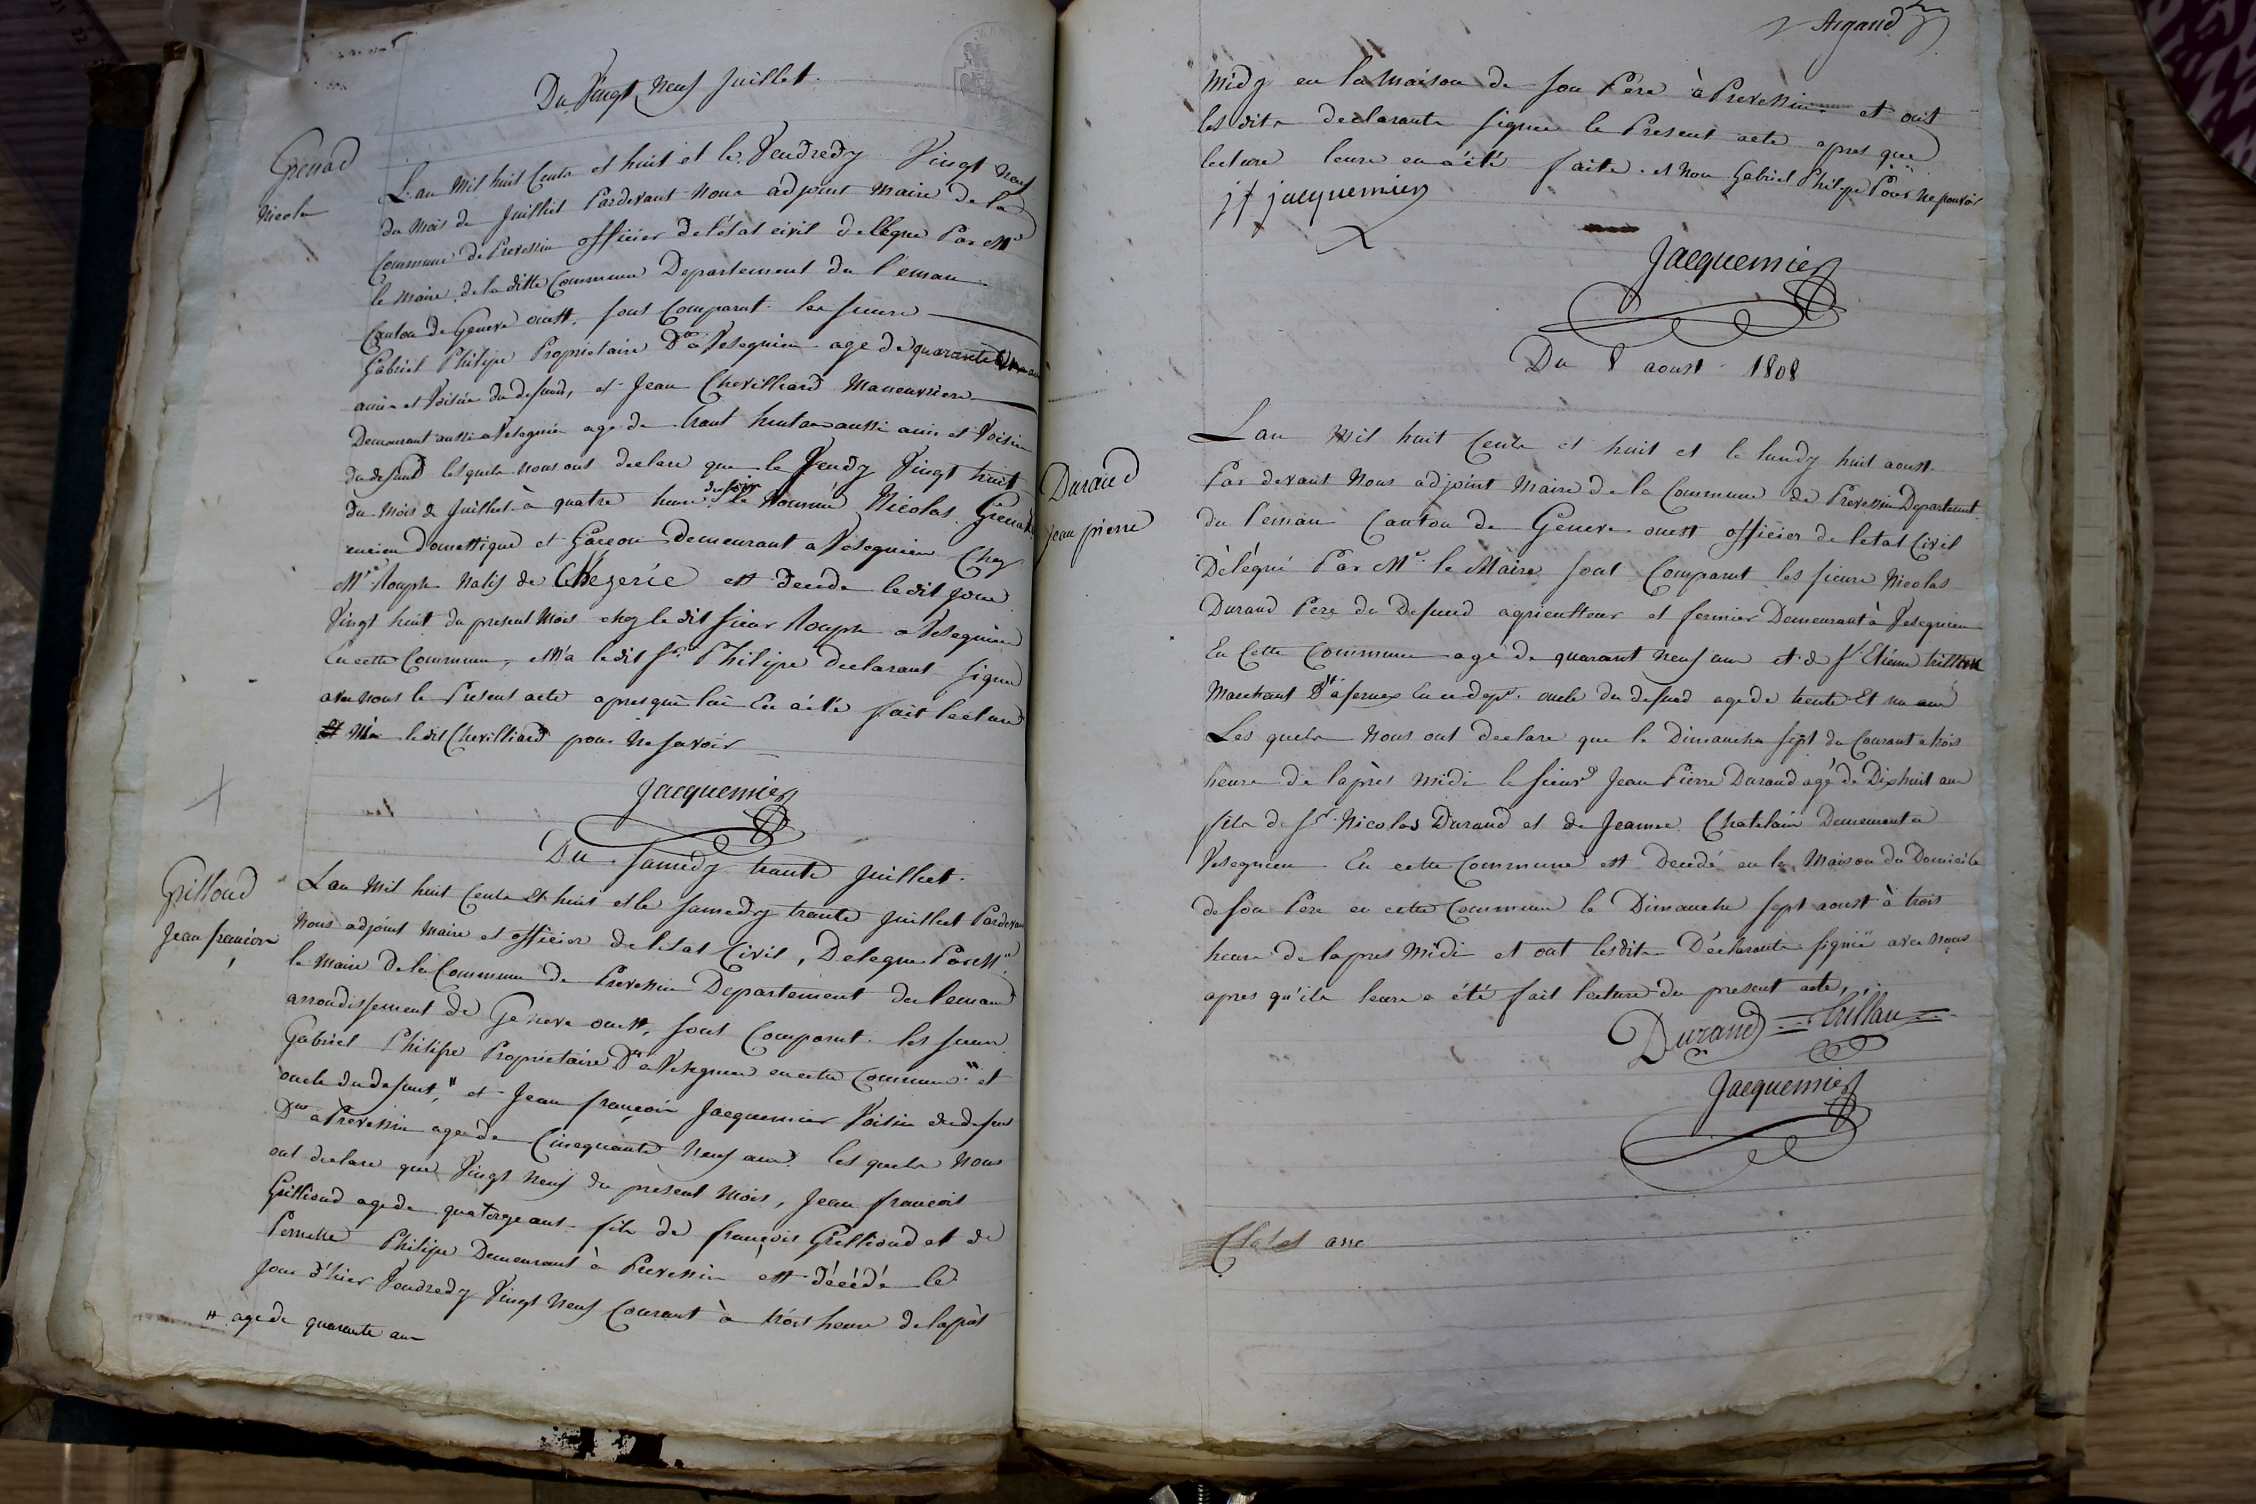 Du Vingt Neuf Juillet.
Grenad
Nicolas
L'an Mil huit Cents et huit et le Vendredy Vingt Neuf
du Mois de Juilliet Pardevant Nous adjoint Maire de la
Commune de Prevessin officier de l'état civil delégué Par Mr
le Maire de la ditte Commune Departement du Leman
Canton de Geneve ouest. sont Comparut les sieurs
Gabriel Philipe Proprietaire Dt a Vesegnien agé de quarante ans
amis et Voisin du defund, et Jean Chevilliard Maneuvriere
Demeurant aussi a Vesegnien agé de trant huitans aussi amis et Voisin
du defund lesquels nous ont declaré que le Jeudy Vingt huit
du Mois de Juillet à quatre heure du soir le Nommé Nicolas Grenad
ancien Domestique et Garcon demeurant a Vesegnien Chez
Mr Rouph Natif de Chezerie est décédé ledit Jour
Vingt huit du present Mois chez le dit sieur Rouph a Vesegnien
En cette Commune, et N'a ledit Sr Philipe declarant signé
avec nous le Present acte apres quē lui En a été fait lecture
Et N'a ledit Chevilliard pour Ne savoir
Jacquemier
Du Samedy trante Juilliet.
Grilloud
Jean francois
Lan Mil huit Cents Et huit et le Samedy trante Juillet Pardevant
Nous adjoint Maire et officier de l'etat Civil, Delegue Par Mr
le Maire de la Commune de Prevessin Departement du leman
arrondissement de Geneve ouest, sont Comparut les sieurs
Gabriel Philipe Proprietaire Dt a Vesegnien en cette Commune # et
oncle du defunt, # et Jean françois Jacquemier Voisin du defunt
Dt a Prevessin agé de Cinequante Neuf ans les quels Nous
ont declare que Vingt Neuf du present Mois, Jean francois
Grilliond age de quatorze ans fils de françois Grilliond et de
Pernette Philipe Demeurant à Prevessin est décédé le
Jour d'hier Vendredy Vingt Neuf Courant à trois heure de lapres
# agé de quarante ans
Argaud
Midy en la Maison de son Pere à Prevessin et ont
les dits declarants signé le Present acte apres que
lecture leurs en a été faite. et Non Gabriel Philipe Pour Ne pouvoir
jf jacquemier
Jacquemier
Du 8 aoust 1808
Durand
Jean pierre
Lan Mil huit Cents et huit et le lundy huit aoust
Par devant Nous adjoint Maire de la Commune de Prevessin Departement
du Leman Canton de Geneve ouest officier de letat Civil
Délégué Par Mr le Maire sont Comparut les sieurs Nicolas
Durand Pere du Defund agriculteur et fermier Demeurant à Vesegnien
En Cette Commune agé de quarant Neuf ans et de Sr Etienne
Marchant Dt à fernex En ce dept. oncle du defund agé de trente Et un ans
Les quels Nous ont declare que le Dimanche sept du Courant a trois
heure de laprès midi le sieur Jean Pierre Durand agé de Dixhuit ans
fils de Sr Nicolas Durand et de Jeanne Chatelain Demeurant a
Vesegnien En cette Commune est Decédé en la Maison du Domicile
de son Pere en cette Commune le Dimanche sept aoust à trois
heure de lapres Midi et ont lesdits Déclarants signé avec Nous
apres qu'ils leurs a été fait lecture du present acte,
Durand
Jacquemier